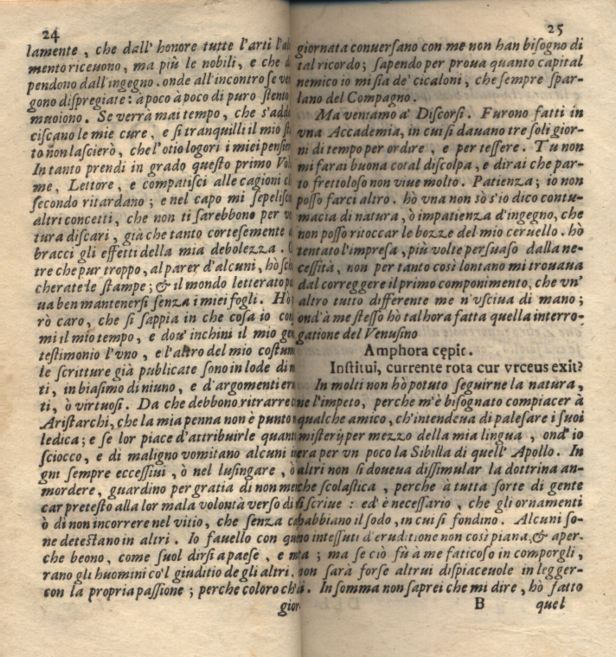 24
lamente, che dall' honore tutte l'arti l'
mento riceuono, ma più le nobili, e che
pendono dall'ingegno. onde all'incontro se ve
gono dispregiate: à poco à poco di puro stento
muoiono. Se verrà mai tempo, che s'addol
ciscano le mie cure, e si tranquilli il mio
to non lascierò, che l'otio logori i miei pensier
In tanto prendi in grado questo primo Vol
me, Lettore, e compatisci alle cagioni
secondo ritardano; e nel capo mi sepelisc
altri concetti, che non ti sarebbono per
tura discari, già che tanto cortesemente
bracci gli effetti della mia debolezza.
tre che pur troppo, al parer d'alcuni, hò
cherate le stampe; & il mondo letterato
ua ben mantenersi senza i miei fogli. Hò
rò caro, che si sappia in che cosa io con
mi il mio tempo, e dou' inchini il mio
testimonio l'vno, e l'altro del mio costum
le scritture già publicate sono in lode di
ti, in biasimo di niuno, e d'argomenti er
ti, ò virtuosi. Da che debbono ritrarre
Aristarchi, che la mia penna non è punto
ledica; e se lor piace d'attribuirle quant
sciocco, e di maligno vomitano alcuni in
gni sempre eccessiui, ò nel lusingare, ò
mordere, guardino per gratia di non me
car pretesto alla lor mala volontà verso di
ò di non incorrere nel vitio, che senza
ne detestano in altri. Io fauello con qu
che beono, come suol dirsi a paese, e
rano gli huomini co'l giuditio de gli altri.
con la propria passione; perche coloro ch
gior
25
giornata conuersano con me non han bisogno di
tal ricordo; sapendo per proua quanto capital
nemico io mi sia de' cicaloni, che sempre spar-
lano del Compagno.
Ma veniamo a' Discorsi. Furono fatti in
vna Accademia, in cui si dauano tre soli gior-
ni di tempo per ordire, e per tessere. Tu non
mi farai buona cotal discolpa, e dirai che par-
to frettoloso non viue molto. Patienza; io non
posso farci altro. hò vna non sò s'io dico contu-
macia di natura, ò impatienza d'ingegno, che
non posso ritoccar le bozze del mio ceruello. hò
tentato l'impresa, più volte persuaso dalla ne-
cessità, non per tanto così lontano mi trouaua
dal correggere il primo componimento, che vn'
altro tutto differente me n'vsciua di mano;
ond'à me stesso hò talhora fatta quella interro-
gatione del Venusino
Amphora cępit.
Institui, currente rota cur vrceus exit?
In molti non hò potuto seguirne la natura,
ne l'impeto, perche m'è bisognato compiacer à
qualche amico, ch'intendeua di palesare i suoi
misterij per mezzo della mia lingua, ond' io
era per vn poco la Sibilla di quell' Apollo. In
altri non si doueua dissimular la dottrina an-
che scolastica, perche à tutta sorte di gente
si scriue: ed' è necessario, che gli ornamenti
habbiano il sodo, in cui si fondino. Alcuni so-
no intessuti d'eruditione non così piana, & aper-
ta; ma se ciò fù à me faticoso in compor gli,
non sarà forse altrui dispiaceuole in legger-
li. In somma non saprei che mi dire, hò fatto
B quel